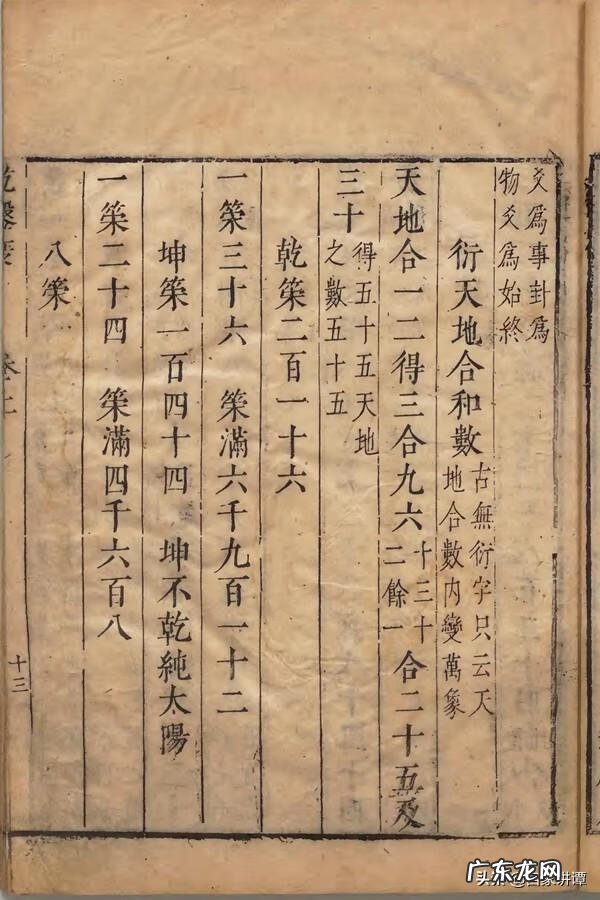 爻爲事卦爲
物爻爲始終
衍天地合和數 古無衍字只云天
地合數内變萬象
天地合一二得三合九六 十三十
二餘一 合二十五及
三十 得五十五天地
之數五十五
乾策二百一十六
一策三十六 策滿六千九百一十二
坤策一百四十四 坤不乾純太陽
一策二十四 策滿四千六百八
八策
十三
广东龙网